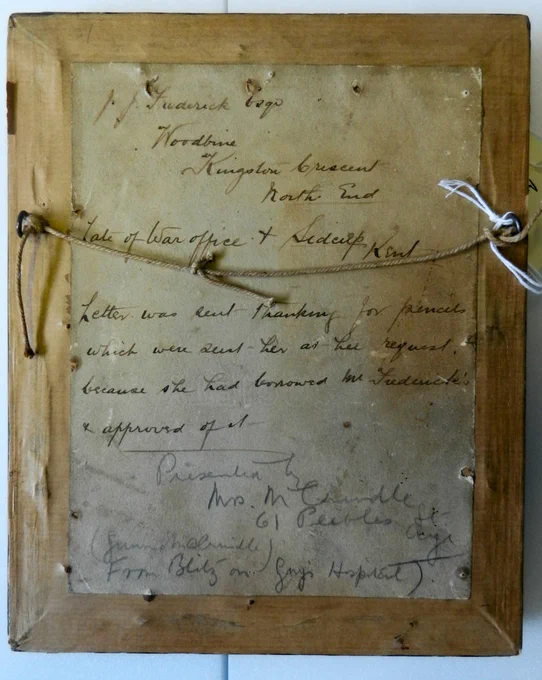 J. J. Frederick Esqr
Woodbine
Kingston Crescent
North End
Late of War office & Sidcup, Kent
Letter was sent thanking for pencils
which were sent her at her request,
because she had borrowed Mr Frederick's
& approved of it
Presented by
Mrs. McCrindle
61 Peebles St.
Ayr
McCrindle)
From Blitz on Guy's Hospital).